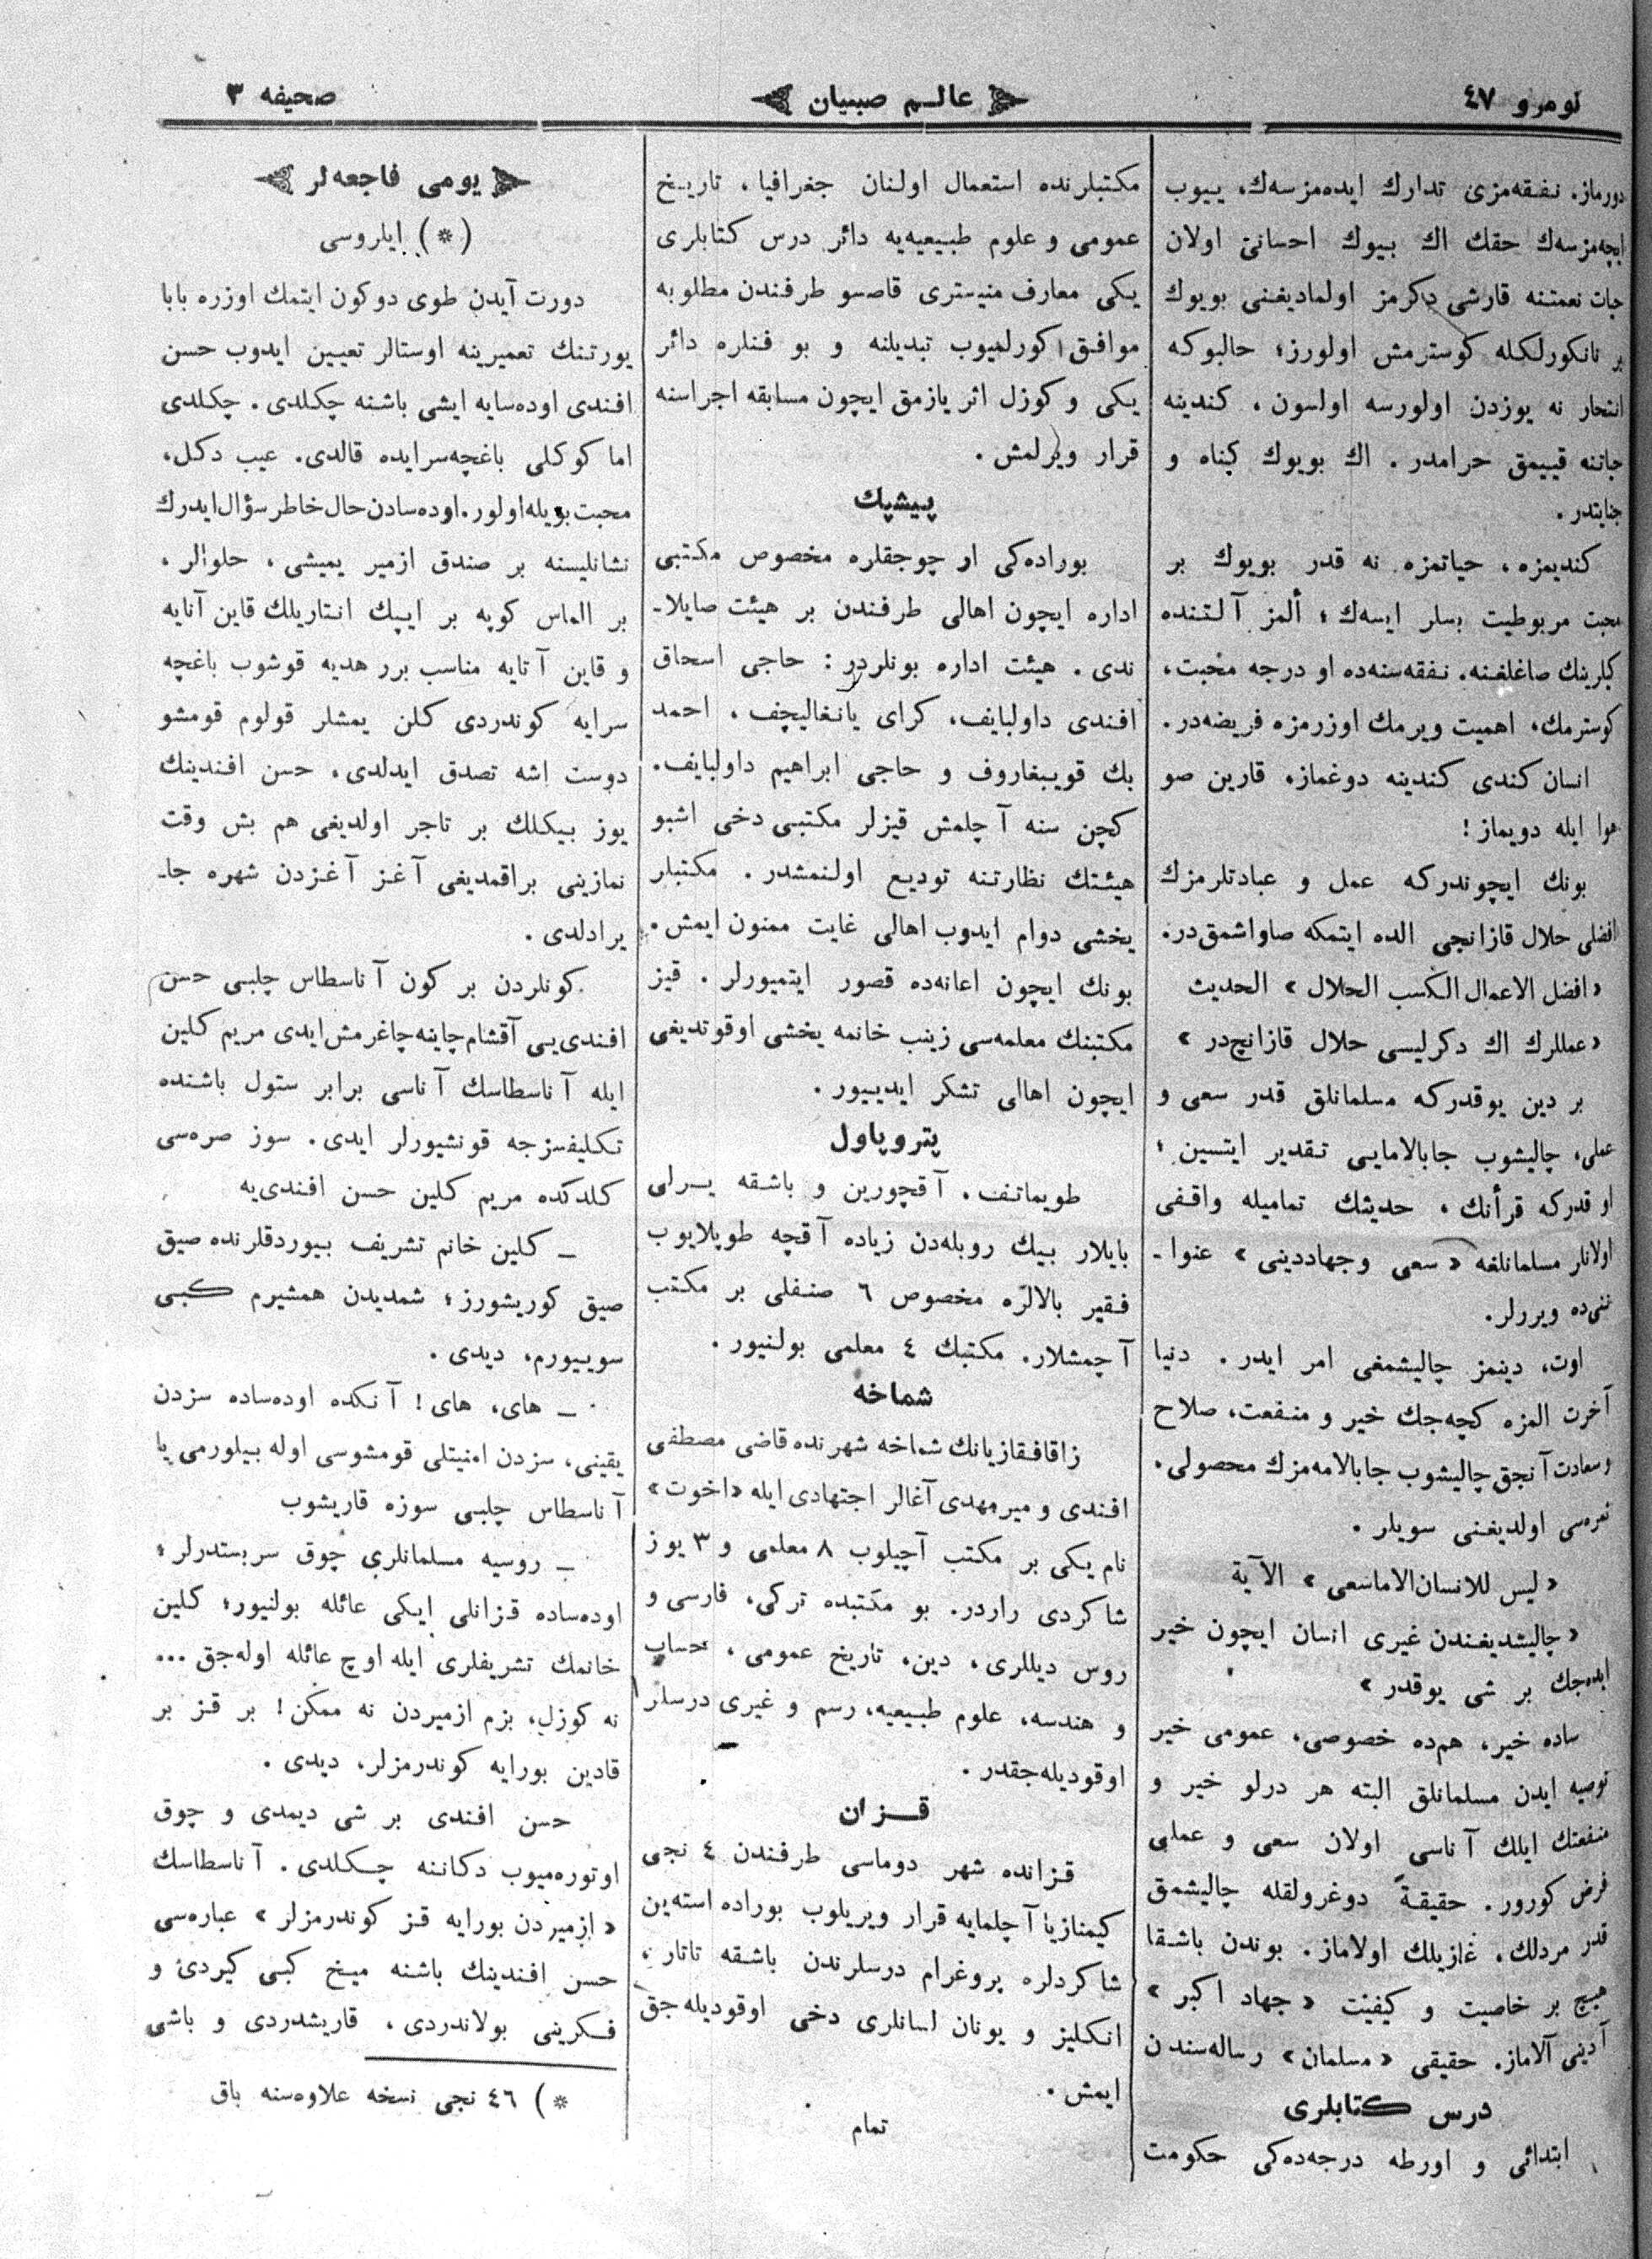 نومرو ٤٧
عالـم صبيان
صحيفه ٣
دورماز. نفقه‌مزى تدارك ايده‌مزسه‌ك، ييوب
ايچه‌مزسه‌ك حقك اك بيوك احسانى اولان
حيات نعمتنه قارشى دكرمز اولماديغنى بويوك
بر نانكورلكله كوسترمش اولورز؛ حالبوكه
انتحار نه يوزدن اولورسه اولسون، كندينه
جاننه قييمق حرامدر. اك بويوك كناه و
جنايتدر.
كنديمزه، حياتمزه نه قدر بويوك بر
محبت مربوطيت بسلر ايسه‌ك؛ ألمز آلتنده
كيلرينك صاغلغنه، نفقه‌سنه‌ده او درجه محبت،
كوسترمك، اهميت ويرمك اوزرمزه فريضه‌در.
انسان كندى كندينه دوغماز، قارين صو
هوا ايله دويماز!
بونك ايچوندركه عمل و عبادتلرمزك
افضلى حلال قازانجى الده ايتمكه صاواشمق‌در.
«افضل الاعمال الكسب الحلال» الحديث
«عمللرك اك دكرليسى حلال قازانچ‌در»
بر دين يوقدركه مسلمانلق قدر سعى و
عملى، چاليشوب جابالامايى تقدير ايتسين؛
او قدركه قرأنك، حديثك تماميله واقفى
اولانلر مسلمانلغه «سعى وجهاددينى» عنوا-
ننى‌ده ويررلر.
اوت، دينمز چاليشمغى امر ايدر. دنيا
آخرت المزه كچه‌جك خير و منفعت، صلاح
وسعادت آنجق چاليشوب جابالامه‌مزك محصولى،
ثمره‌سى اولديغنى سويلر.
«ليس للانسان الاماسعى» الآية
«چاليشديغندن غيرى انسان ايچون خير
ايده‌جك بر شى يوقدر»
ساده خير، هم‌ده خصوصى، عمومى خير
توصيه ايدن مسلمانلق البته هر درلو خير و
منفعتك ايلك آناسى اولان سعى و عملى
فرض كورور. حقيقةً دوغرولقله چاليشمق
قدر مردلك، غازيلك اولاماز. بوندن باشقا
هيچ بر خاصيت و كيفيت «جهاد اكبر»
آدينى آلاماز. حقيقى «مسلمان» رساله‌سندن
درس كتابلرى
ابتدائى و اورطه درجه‌ده‌كى حكومت
مكتبلرنده استعمال اولنان جغرافيا، تاريخ
عمومى و علوم طبيعيه‌يه دائر درس كتابلرى
يكى معارف منيسترى قاصسو طرفندن مطلوبه
موافق كورلميوب تبديلنه و بو فنلره دائر
يكى و كوزل اثر يازمق ايچون مسابقه اجراسنه
قرار ويرلمش.
پيشپك
بوراده‌كى ار چوجقلره مخصوص مكتبى
اداره ايچون اهالى طرفندن بر هيئت صايلا-
ندى. هيئت اداره بونلردر: حاجى اسحاق
افندى داولبايف، كراى يانغاليچف، احمد
بك قويبغاروف و حاجى ابراهيم داولبايف.
كچن سنه آچلمش قيزلر مكتبى دخى اشبو
هيئتك نظارتنه توديع اولنمشدر. مكتبلر
يخشى دوام ايدوب اهالى غايت ممنون ايمش.
بونك ايچون اعانه‌ده قصور ايتميورلر. قيز
مكتبنك معلمه‌سى زينب خانمه يخشى اوقوتديغى
ايچون اهالى تشكر ايدييور.
پتروپاول
طويماتف، آقچورين و باشقه يـرلى
بايلار بيك روبله‌دن زياده آقچه طوپلايوب
فقير بالالره مخصوص ٦ صنفلى بر مكتب
آچمشلار. مكتبك ٤ معلمى بولنيور.
شماخه
زاقافقازيانك شماخه شهرنده قاضى مصطفى
افندى و ميرمهدى آغالر اجتهادى ايله «اخوت»
نام يكى بر مكتب آچيلوب ٨ معلمى و ٣ يوز
شاكردى واردر. بو مكتبده تركى، فارسى و
روس ديللرى، دين، تاريخ عمومى، حساب
و هندسه، علوم طبيعيه، رسم و غيرى درسلر
اوقوديله‌جقدر.
قـزان
قزانده شهر دوماسى طرفندن ٤ نجى
كيمنازيا آچلمايه قرار ويريلوب بوراده استه‌ين
شاكردلره پروغرام درسلرندن باشقه تاتار،
انكليز و يونان لسانلرى دخى اوقوديله‌جق
ايمش.
تمام
يومى فاجعه‌لر
(*) ايلروسى
دورت آيدن طوى دوكون ايتمك اوزره بابا
يورتنك تعميرينه اوستالر تعيين ايدوب حسن
افندى اوده‌سايه ايشى باشنه چكلدى. چكلدى
اما كوكلى باغچه‌سرايده قالدى. عيب دكل،
محبت بويله اولور. اوده‌سادن حال خاطر سؤال ايدرك
نشانليسنه بر صندق ازمير يميشى، حلوالر،
بر الماس كوپه بر ايپك انتاريلك قاين آنايه
و قاين آتايه مناسب برر هديه قوشوب باغچه
سرايه كوندردى كلن يمشلر قولوم قومشو
دوست اشه تصدق ايدلدى، حسن افندينك
يوز بيكلك بر تاجر اولديغى هم بش وقت
نمازينى براقمديغى آغز آغزدن شهره جا-
يرادلدى.
كونلردن بر كون آناسطاس چلبى حسن
افندى‌يى آقشام چاينه چاغرمش ايدى مريم كلين
ايله آناسطاسك آناسى برابر ستول باشنده
تكليفسزجه قونشيورلر ايدى. سوز صره‌سى
كلدكده مريم كلين حسن افندى‌يه
ـ كلين خانم تشريف بيوردقلرنده صيق
صيق كوريشورز؛ شمديدن همشيرم كبى
سوييورم، ديدى.
ـ هاى، هاى! آنكده اوده‌ساده سزدن
يقينى، سزدن امنيتلى قومشوسى اوله بيلورمى يا
آناسطاس چلبى سوزه قاريشوب
ـ روسيه مسلمانلرى چوق سربستدرلر؛
اوده‌ساده قزانلى ايكى عائله بولنيور؛ كلين
خانمك تشريفلرى ايله اوچ عائله اوله‌جق ...
نه كوزل، بزم ازميردن نه ممكن! بر قز بر
قادين بورايه كوندرمزلر، ديدى.
حسن افندى بر شى ديمدى و چوق
اوتوره‌ميوب دكاننه چكلدى. آناسطاسك
«ازميردن بورايه قز كوندرمزلر» عباره‌سى
حسن افندينك باشنه ميخ كبى كيردى و
فكرينى بولاندردى، قاريشدردى و باشى
*) ٤٦ نجى نسخه علاوه‌سنه باق